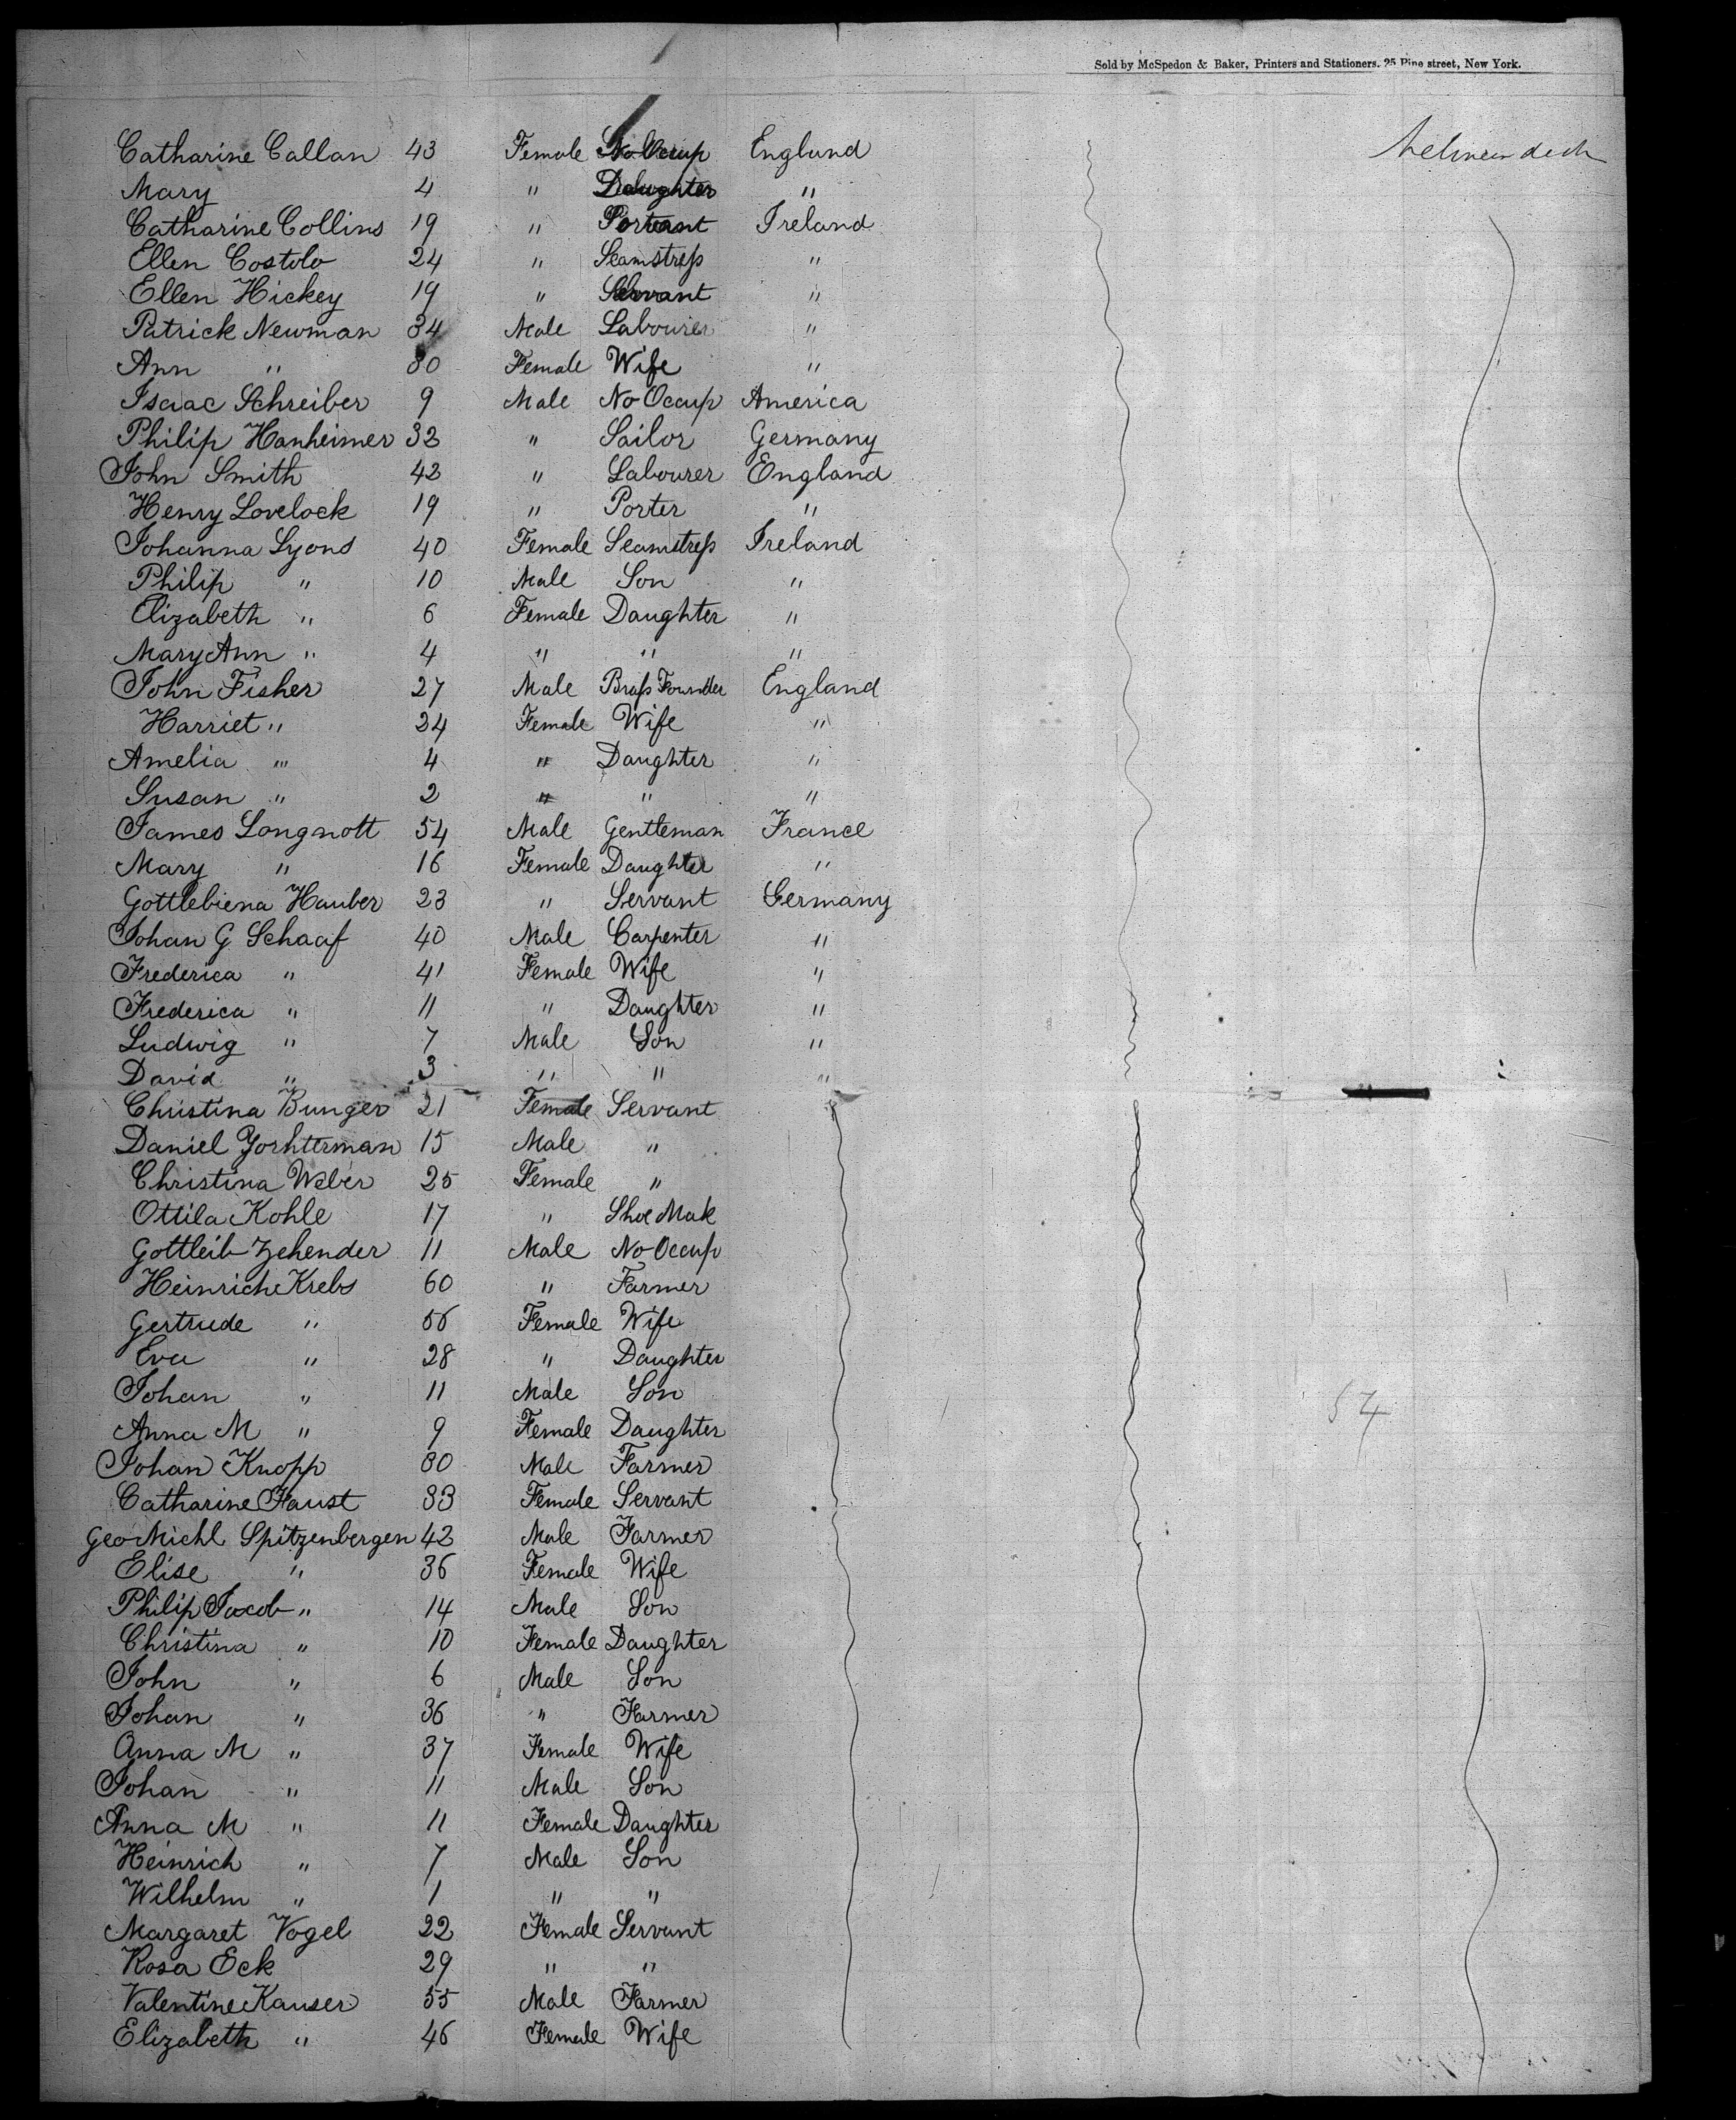 Sold by McSpedon & Baker, Printers and Stationers. 25 Pine street, New York.
Catharine Callan 43 Female No Occup England
Mary 4 " Daughter "
Catharine Collins 19 " Servant Ireland
Ellen Costolo 24 " Seamstress "
Ellen Hickey 19 " Servant "
Patrick Newman 34 Male Labourer "
Ann " 30 Female Wife "
Isaac Schreiber 9 Male No Occup America
Philip Hanheimer 32 " Sailor Germany
John Smith 42 " Labourer England
Henry Lovelock 19 " Porter "
Johanna Lyons 40 Female Seamstress Ireland
Philip " 10 Male Son "
Elizabeth " 6 Female Daughter "
Mary Ann " 4 " " "
John Fisher 27 Male Brass Founder England
Harriet " 24 Female Wife "
Amelia " 4 " Daughter "
Susan " 2 " " "
James Longnott 54 Male Gentleman France
Mary " 16 Female Daughter "
Gottlebiena Hauber 23 " Servant Germany
Johan G Schaaf 40 Male Carpenter "
Frederica " 41 Female Wife "
Frederica " 11 " Daughter "
Ludwig " 7 Male Son "
David " 3 " " "
Christina Bunger 21 Female Servant
Daniel Yorhterman 15 Male "
Christina Weber 25 Female "
Ottila Kohle 17 " Shoe Mak
Gottleib Zehender 11 Male No Occup
Heinrich Krebs 60 " Farmer
Gertrude " 56 Female Wife
Eva " 28 " Daughter
Johan " 11 Male Son
Anna M " 9 Female Daughter
57
Johan Knopp 30 Male Farmer
Catharine Faust 33 Female Servant
Geo Michl Spitzenbergen 42 Male Farmer
Elise " 36 Female Wife
Philip Jacob " 14 Male Son
Christina " 10 Female Daughter
John " 6 Male Son
Johan " 36 " Farmer
Anna M " 37 Female Wife
Johan " 11 Male Son
Anna M " 11 Female Daughter
Heinrich " 7 Male Son
Wilhelm " 1 " "
Margaret Vogel 22 Female Servant
Rosa Eck 29 " "
Valentine Kauser 55 Male Farmer
Elizabeth " 46 Female Wife